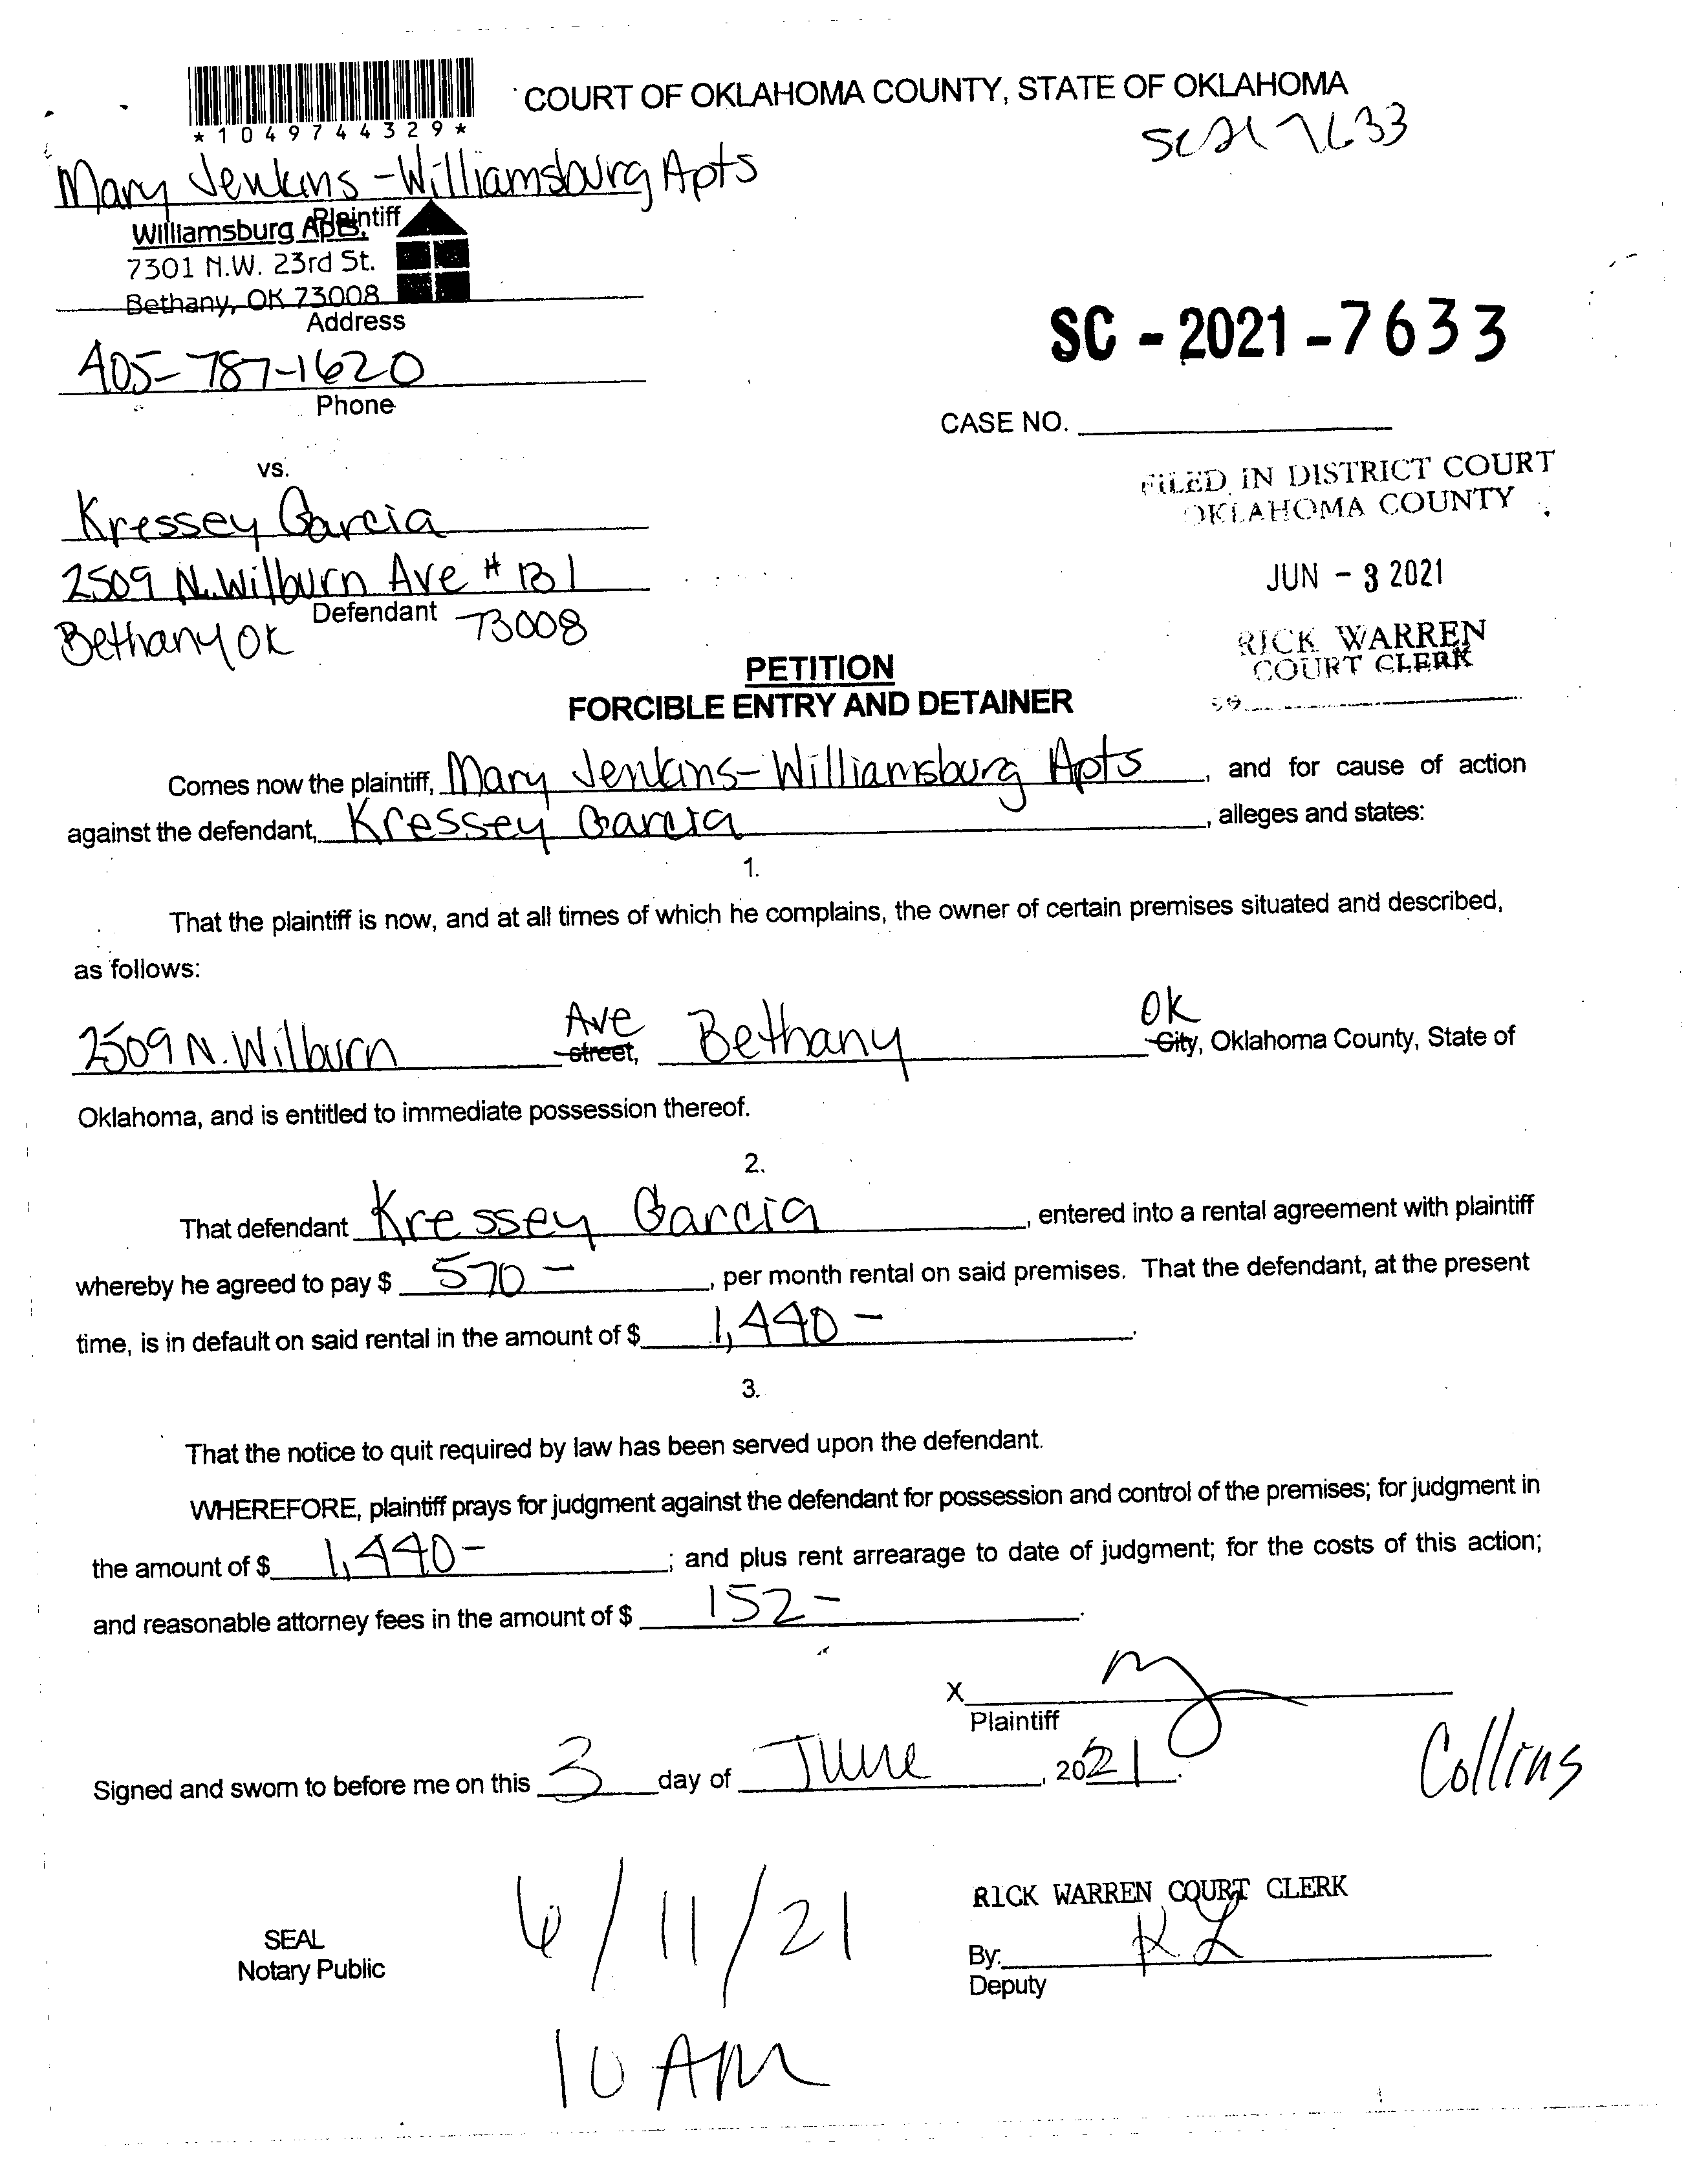 COURT OF OKLAHOMA COUNTY, STATE OF OKLAHOMA
*1049744329*
SC217633
Mary Jenkins-Williamsburg Apts
Plaintiff
Williamsburg Apts.
7301 N.W. 23rd St.
Bethany, OK 73008
Address
SC-2021-7633
405-787-1620
Phone
CASE NO.
vs.
FILED IN DISTRICT COURT
OKLAHOMA COUNTY
Kressey Garcia
2509 N. Wilburn Ave # 131
JUN - 3 2021
Defendant
Bethany OK 73008
RICK WARREN
COURT CLERK
PETITION
FORCIBLE ENTRY AND DETAINER
59
Comes now the plaintiff, Mary Jenkins-Williamsburg Apts, and for cause of action
against the defendant, Kressey Garcia, alleges and states:
1.
That the plaintiff is now, and at all times of which he complains, the owner of certain premises situated and described,
as follows:
2509 N. Wilburn Ave street, Bethany OK City, Oklahoma County, State of
Oklahoma, and is entitled to immediate possession thereof.
2.
That defendant Kressey Garcia, entered into a rental agreement with plaintiff
whereby he agreed to pay $ 570 -, per month rental on said premises. That the defendant, at the present
time, is in default on said rental in the amount of $ 1,440 -.
3.
That the notice to quit required by law has been served upon the defendant.
WHEREFORE, plaintiff prays for judgment against the defendant for possession and control of the premises; for judgment in
the amount of $ 1,440-; and plus rent arrearage to date of judgment; for the costs of this action;
and reasonable attorney fees in the amount of $ 152-.
X
Plaintiff
Signed and sworn to before me on this 3 day of June, 2021.
Collins
RICK WARREN COURT CLERK
6/11/21
SEAL
Notary Public
By: KL
Deputy
10 AM